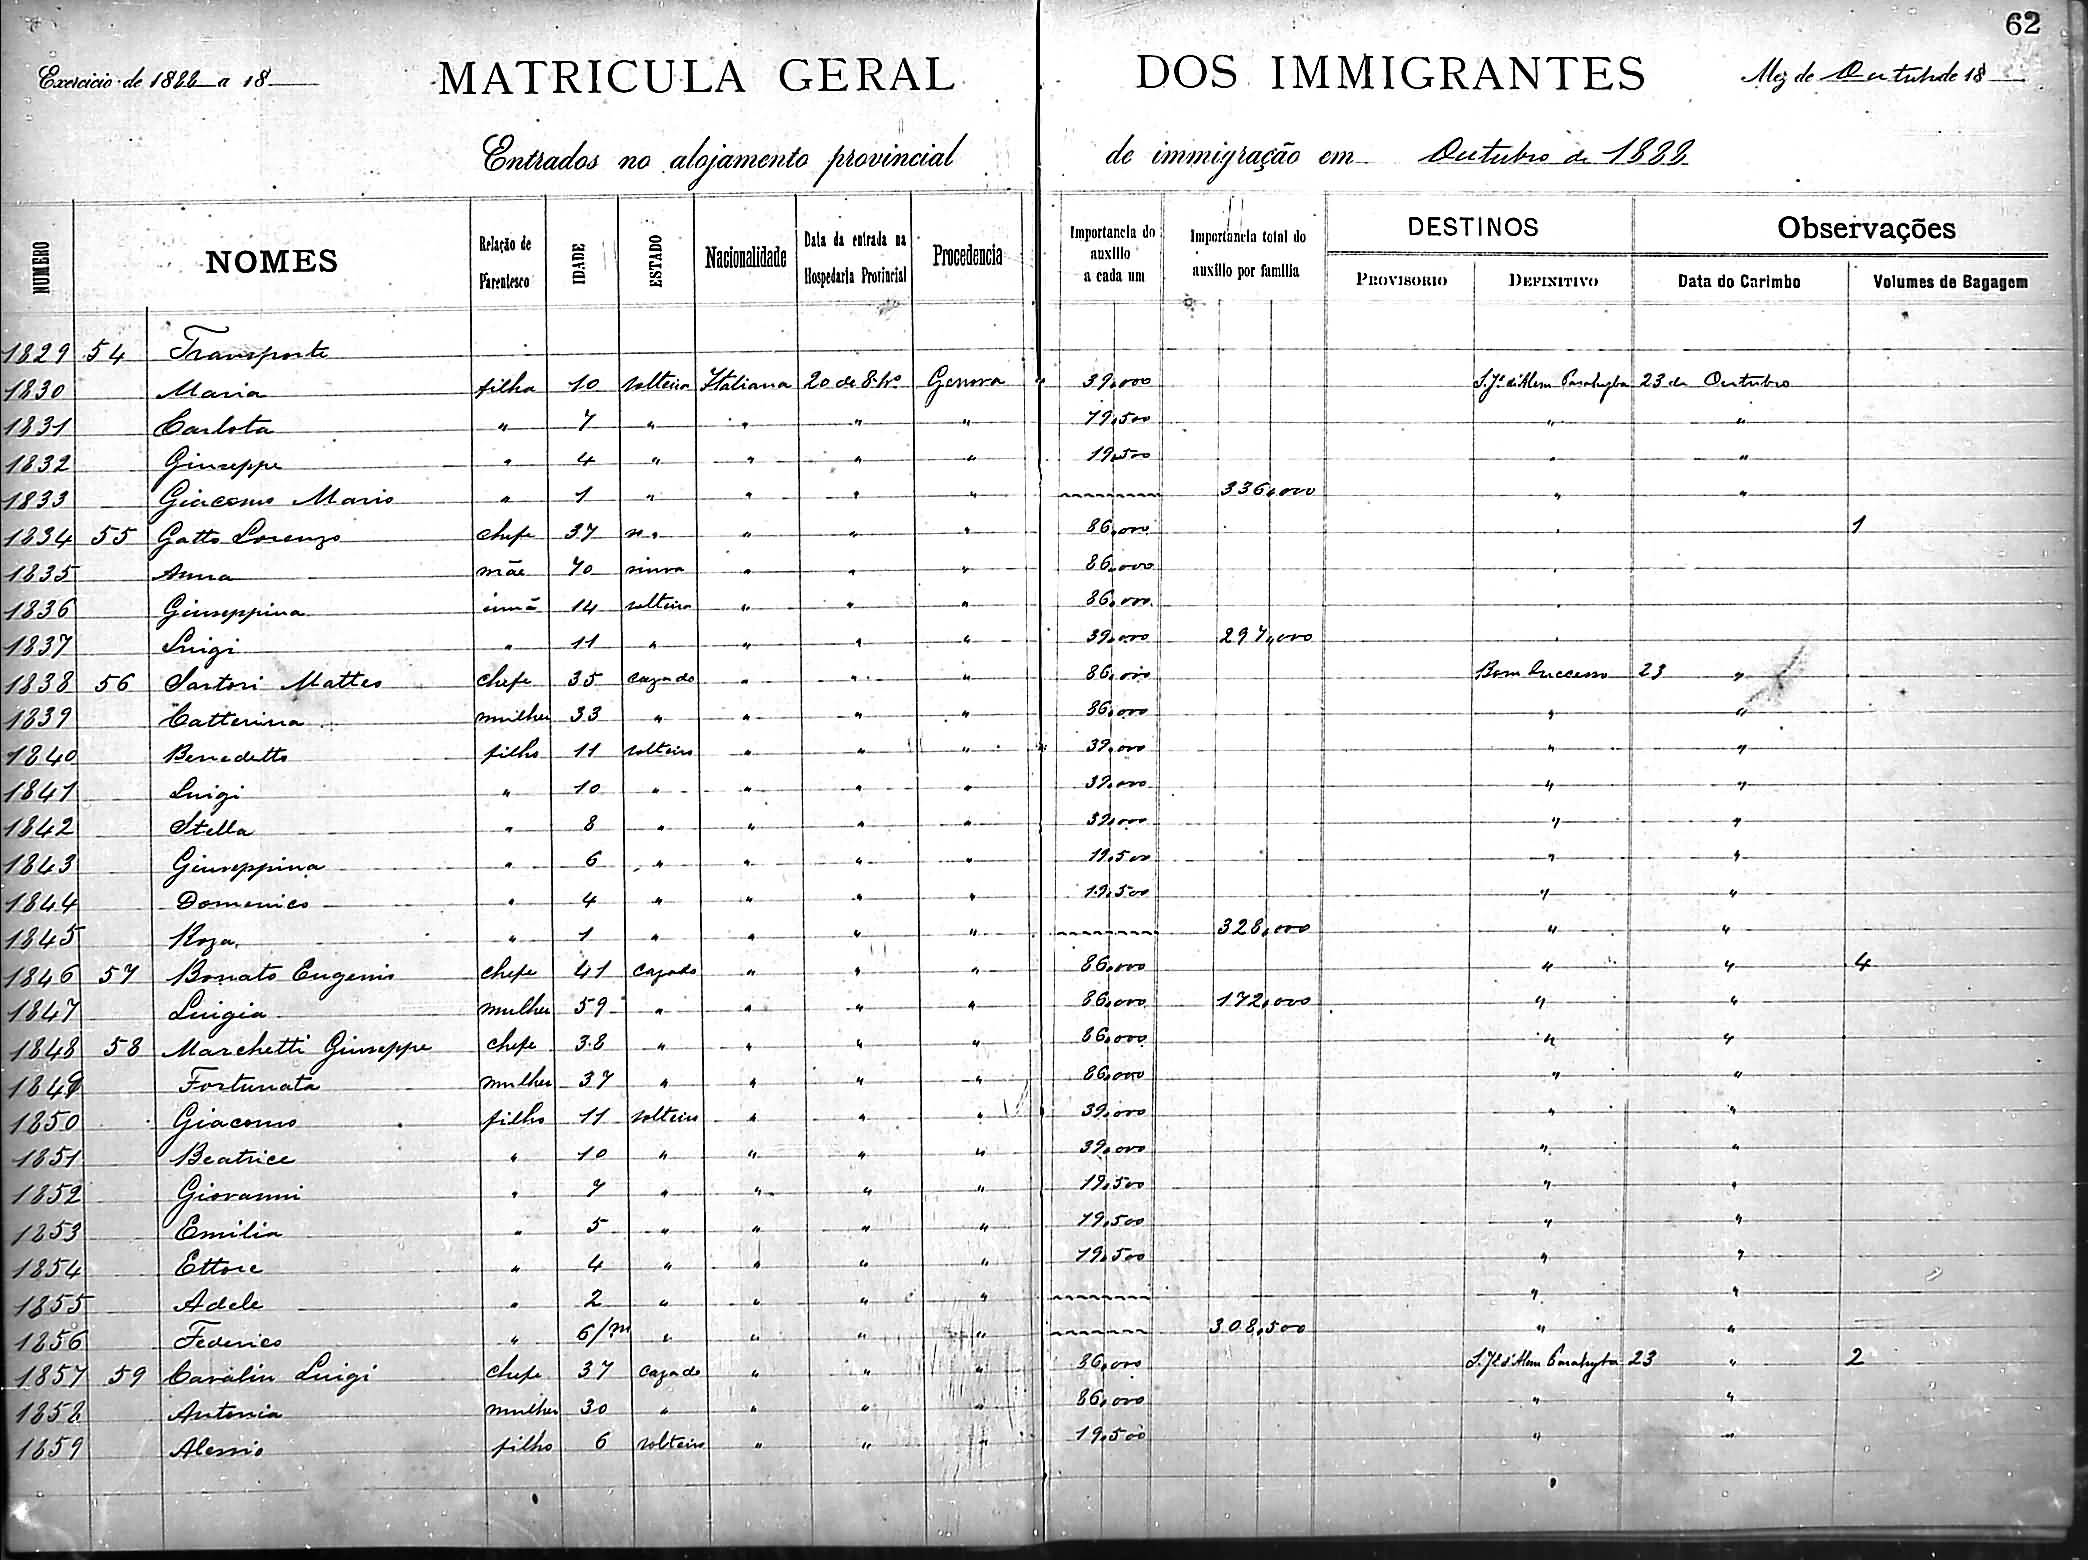 62
Exercicio de 1888 a 18
MATRICULA GERAL DOS IMMIGRANTES
Mez de Outubro de 18
Entrados no alojamento provincial de immigração em Outubro de 1888
NUMERO NOMES Relação de Parentesco IDADE ESTADO Nacionalidade Data da entrada na Hospedaria Provincial Procedencia Importancia do auxilio a cada um Importancia total do auxilio por familia DESTINOS PROVISORIO DEFINITIVO Observações Data do Carimbo Volumes de Bagagem
1829 54 Transporte
1830 Maria filha 10 solteira Italiana 20 de 8.bro Genova 39,000 S. Jé d'Alem Parahyba 23 de Outubro
1831 Carlota " 7 " " " " 19,500 " "
1832 Giuseppe " 4 " " " " 19,500 " "
1833 Giacomo Mario " 1 " " " " 336,000 " "
1834 55 Gatto Lorenzo chefe 37 " " " 86,000 " 1
1835 Anna mãe 70 viuva " " " 86,000 "
1836 Giuseppina irmã 14 solteira " " " 86,000 "
1837 Luigi " 11 " " " " 39,000 297,000 "
1838 56 Sartori Matteo chefe 35 cazado " " " 86,000 Bom Successo 23 "
1839 Catterina mulher 33 " " " " 86,000 " "
1840 Benedetto filho 11 solteiro " " " 39,000 " "
1841 Luigi " 10 " " " " 39,000 " "
1842 Stella " 8 " " " " 39,000 " "
1843 Giuseppina " 6 " " " " 19,500 " "
1844 Domenico " 4 " " " " 19,500 " "
1845 Roza " 1 " " " " 328,000 " "
1846 57 Bonato Eugenio chefe 41 cazado " " " 86,000 " " 4
1847 Luigia mulher 59 " " " " 86,000 172,000 " "
1848 58 Marchetti Giuseppe chefe 38 " " " " 86,000 " "
1849 Fortunata mulher 37 " " " " 86,000 " "
1850 Giacomo filho 11 solteiro " " " 39,000 " "
1851 Beatrice " 10 " " " " 39,000 " "
1852 Giovanni " 7 " " " " 19,500 " "
1853 Emilia " 5 " " " " 19,500 " "
1854 Ettore " 4 " " " " 19,500 " "
1855 Adele " 2 " " " " " "
1856 Federico " 6/m " " " " 308,500 " "
1857 59 Cavalin Luigi chefe 37 cazado " " " 86,000 S. Jé d'Alem Parahyba 23 " 2
1858 Antonia mulher 30 " " " " 86,000 " "
1859 Alessio filho 6 solteiro " " " 19,500 " "